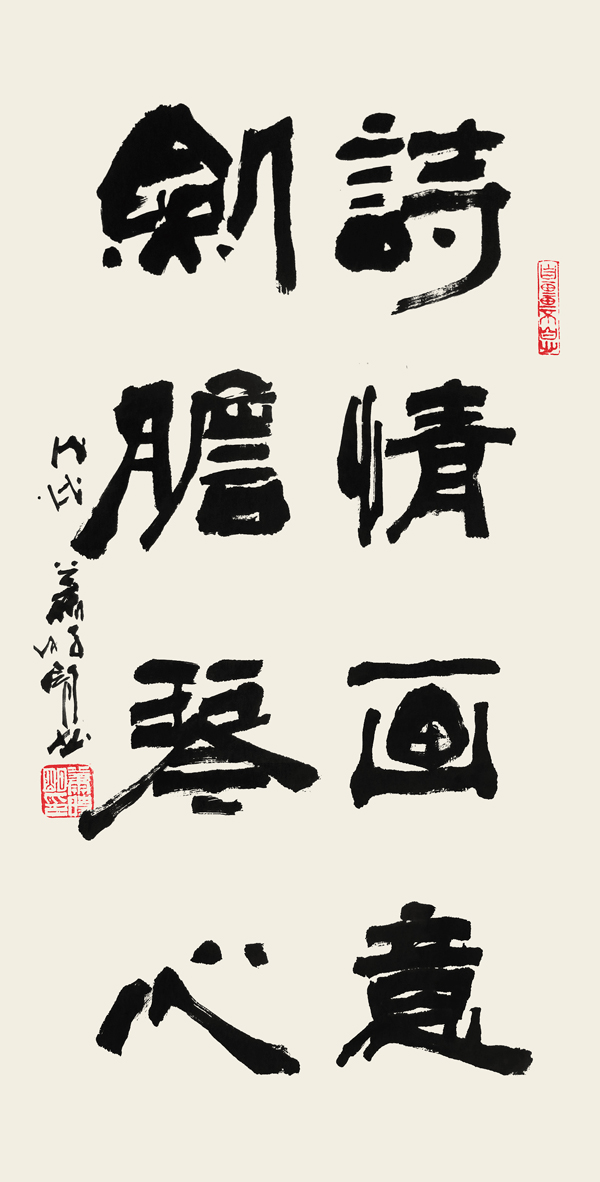 詩情画意
劍膽琴心